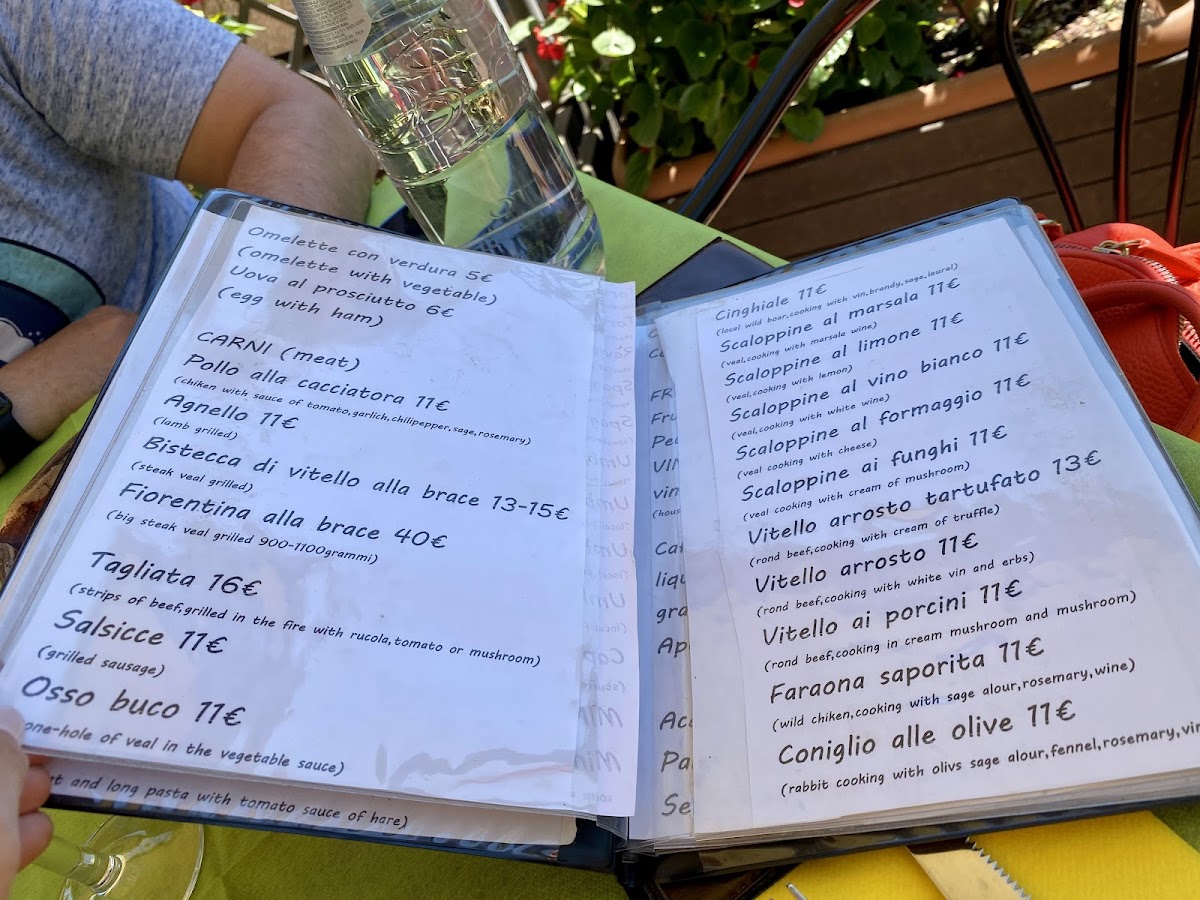 Omelette con verdura 5€
(omelette with vegetable)
Uova al prosciutto 6€
(egg with ham)
CARNI (meat)
Pollo alla cacciatora 11€
(chiken with sauce of tomato,garlich,chilipepper,sage,rosemary)
Agnello 11€
(lamb grilled)
Bistecca di vitello alla brace 13-15€
(steak veal grilled)
Fiorentina alla brace 40€
(big steak veal grilled 900-1100grammi)
Tagliata 16€
(strips of beef,grilled in the fire with rucola,tomato or mushroom)
Salsicce 11€
(grilled sausage)
Osso buco 11€
one-hole of veal in the vegetable sauce)
and long pasta with tomato sauce of hare)
Cinghiale 11€
(local wild boar,cooking with vin,brandy,sage,laurel)
Scaloppine al marsala 11€
(veal,cooking with marsale wine)
Scaloppine al limone 11€
(veal,cooking with lemon)
Scaloppine al vino bianco 11€
(veal,cooking with white wine)
Scaloppine al formaggio 11€
(veal cooking with cheese)
Scaloppine ai funghi 11€
(veal cooking with cream of mushroom)
Vitello arrosto tartufato 13€
(rond beef,cooking with cream of truffle)
Vitello arrosto 11€
(rond beef,cooking with white vin and erbs)
Vitello ai porcini 11€
(rond beef,cooking in cream mushroom and mushroom)
Faraona saporita 11€
(wild chiken,cooking with sage alour,rosemary,wine)
Coniglio alle olive 11€
(rabbit cooking with olivs sage alour,fennel,rosemary,vin